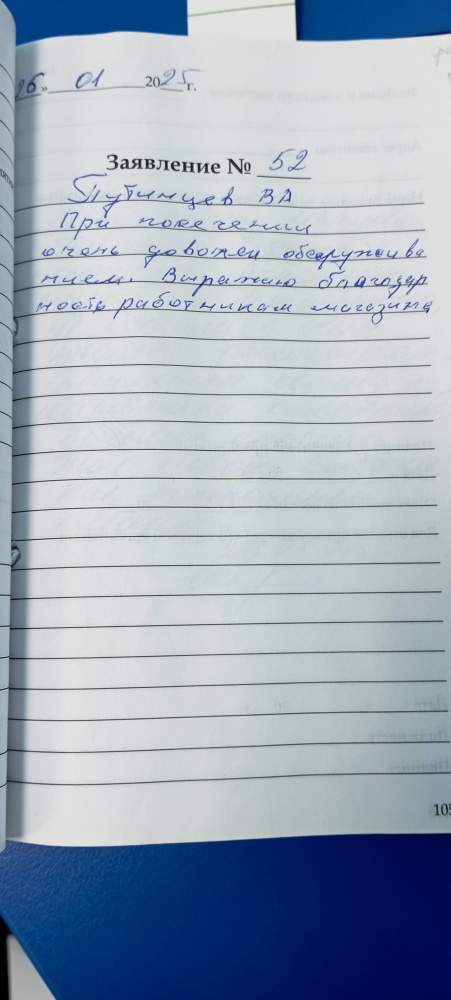 26» 01 2025 г.
Заявление № 52
Путинцев ВА
При посечении
очень доволен обслужива
нием. Выражаю благодар
ность работникам магазина
105